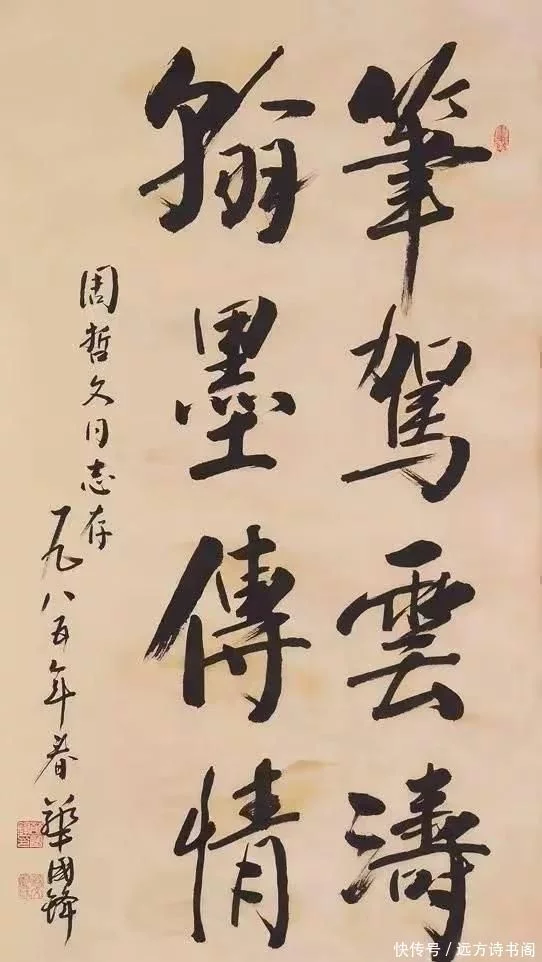 筆駕雲濤
翰墨傳情
周哲文同志存
一九八五年春 華國鋒
快传号/远方诗书阁